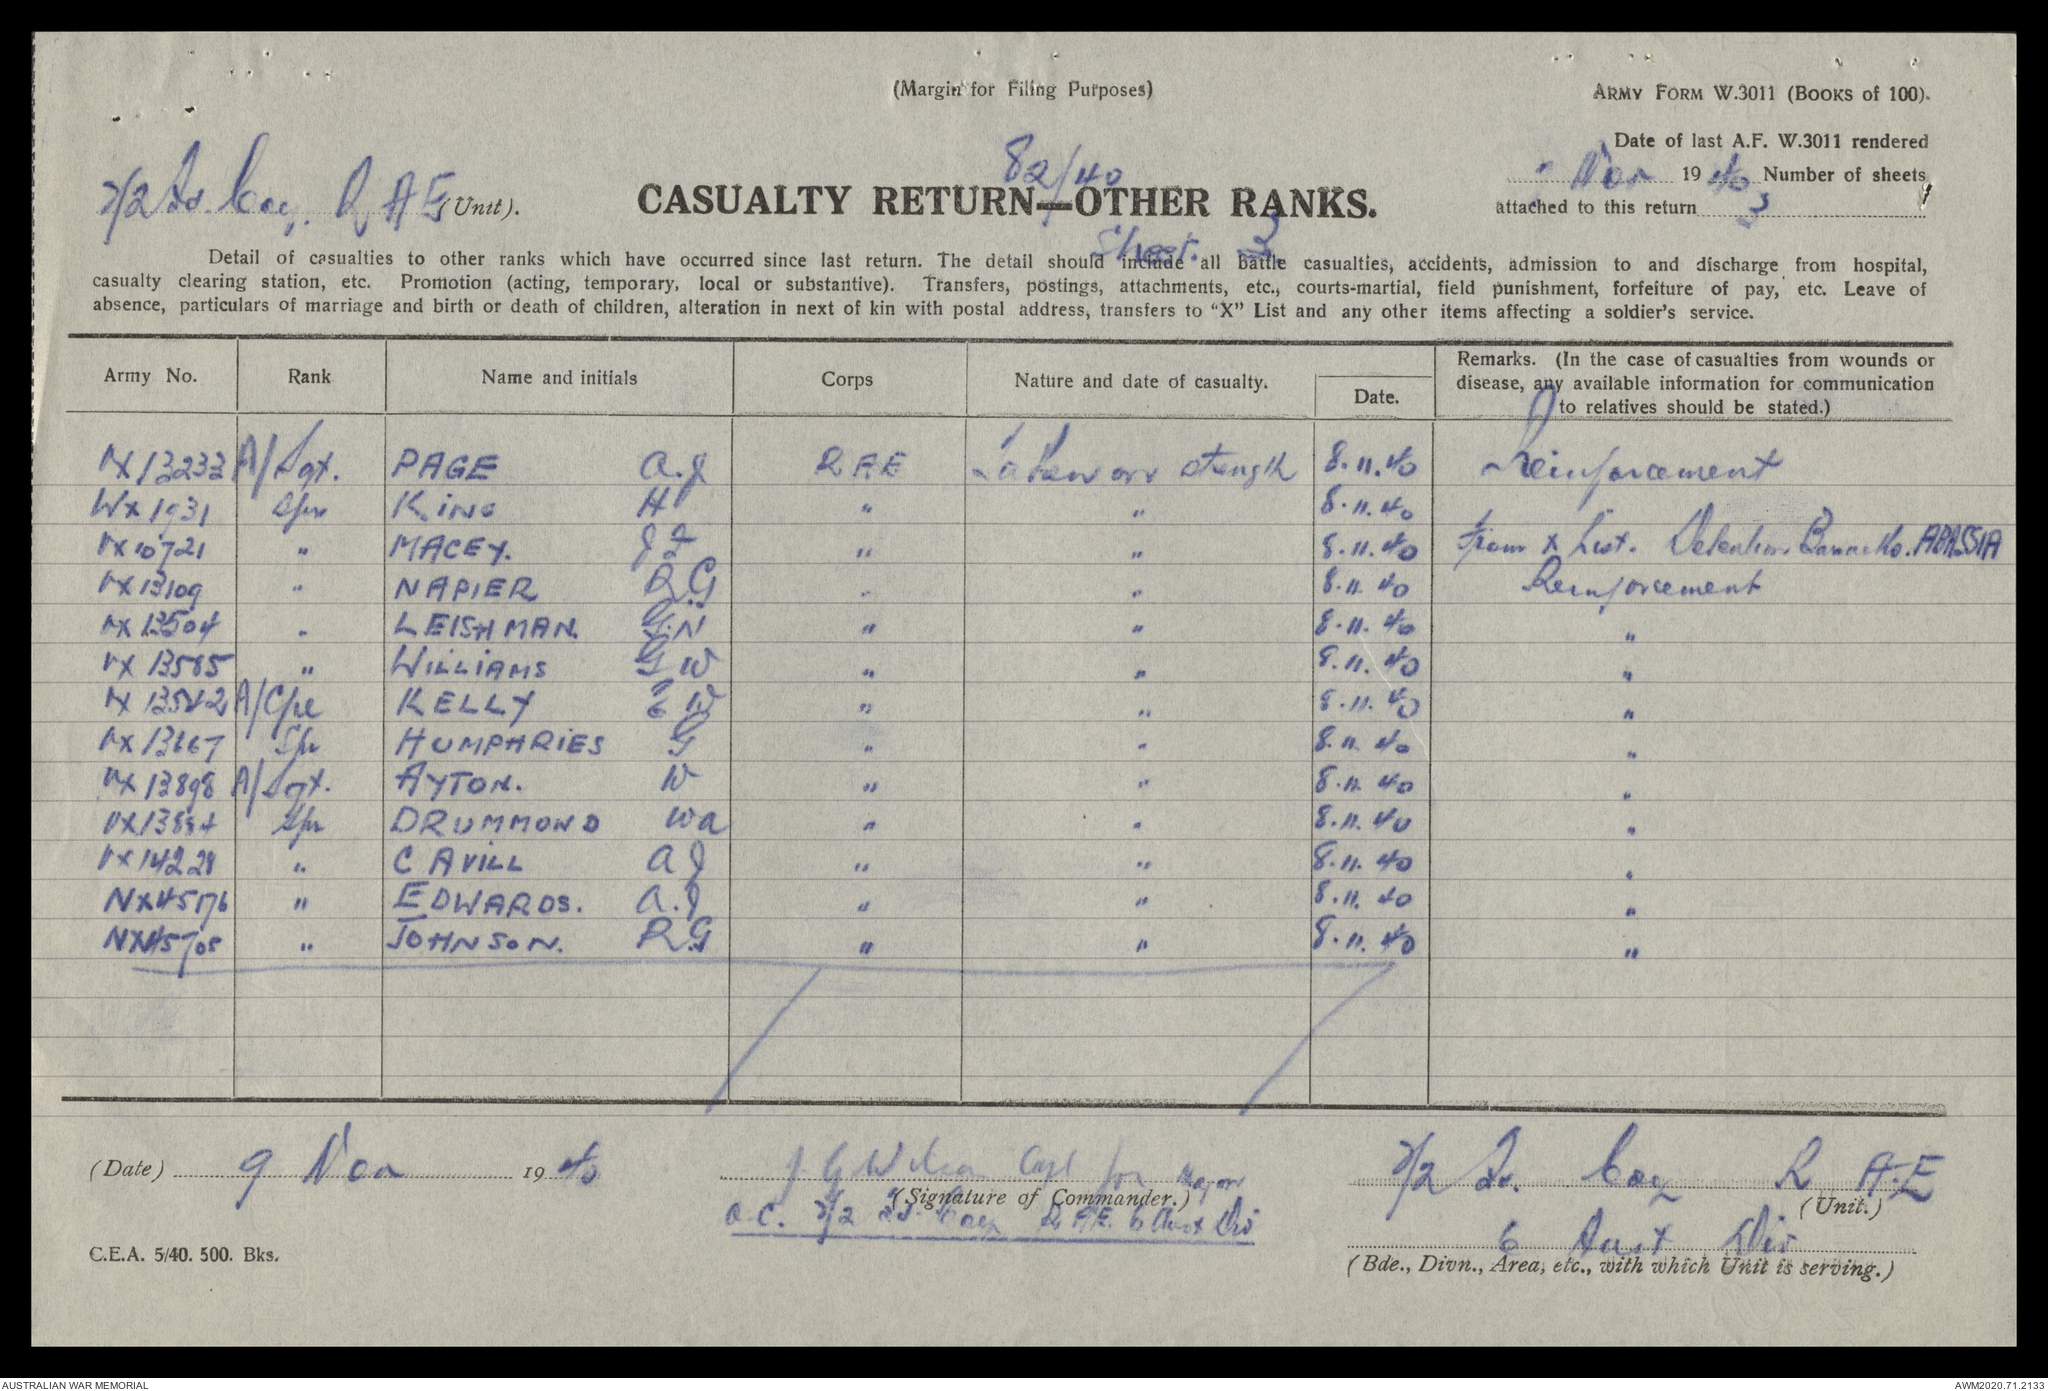 (Margin for Filing Purposes)
ARMY FORM W.3011 (BOOKS of 100).
Date of last A.F. W.3011 rendered
Nov 19 40 Number of sheets
attached to this return 3
2/2 Fd. Coy. R A E (Unit).
82/40
CASUALTY RETURN—OTHER RANKS.
Sheet. 3
Detail of casualties to other ranks which have occurred since last return. The detail should include all battle casualties, accidents, admission to and discharge from hospital,
casualty clearing station, etc. Promotion (acting, temporary, local or substantive). Transfers, postings, attachments, etc., courts-martial, field punishment, forfeiture of pay, etc. Leave of
absence, particulars of marriage and birth or death of children, alteration in next of kin with postal address, transfers to "X" List and any other items affecting a soldier's service.
Army No. Rank Name and initials Corps Nature and date of casualty. Date. Remarks. (In the case of casualties from wounds or
disease, any available information for communication
to relatives should be stated.)
VX13233 A/Sgt. PAGE A.J RAE Taken on strength 8.11.40 Reinforcement
WX1931 Spr KING H " " 8.11.40
VX10721 " MACEY. J F " " 8.11.40 From X List. Detention Barracks. ABASSIA
VX13109 " NAPIER R.G " " 8.11.40 Reinforcement
VX13504 " LEISHMAN. G.N " " 8.11.40 "
VX13585 " WILLIAMS G W " " 8.11.40 "
VX13542 A/Cpl KELLY E W " " 8.11.40 "
VX13667 Spr HUMPHRIES G " " 8.11.40 "
VX13898 A/Sgt. AYTON. W " " 8.11.40 "
VX13884 Spr DRUMMOND WA " " 8.11.40 "
VX14228 " CAVILL A J " " 8.11.40 "
NX45176 " EDWARDS. A.J " " 8.11.40 "
NX45705 " JOHNSON. R.G " " 8.11.40 "
(Date) 9 Nov 19 40
J G Wilson Capt for Major
(Signature of Commander.)
O.C. 2/2 Fd. Coy R.A.E. 6 Aust Div
2/2 Fd. Coy R A.E
(Unit.)
6 Aust Div
(Bde., Divn., Area, etc., with which Unit is serving.)
C.E.A. 5/40. 500. Bks.
AUSTRALIAN WAR MEMORIAL
AWM2020.71.2133